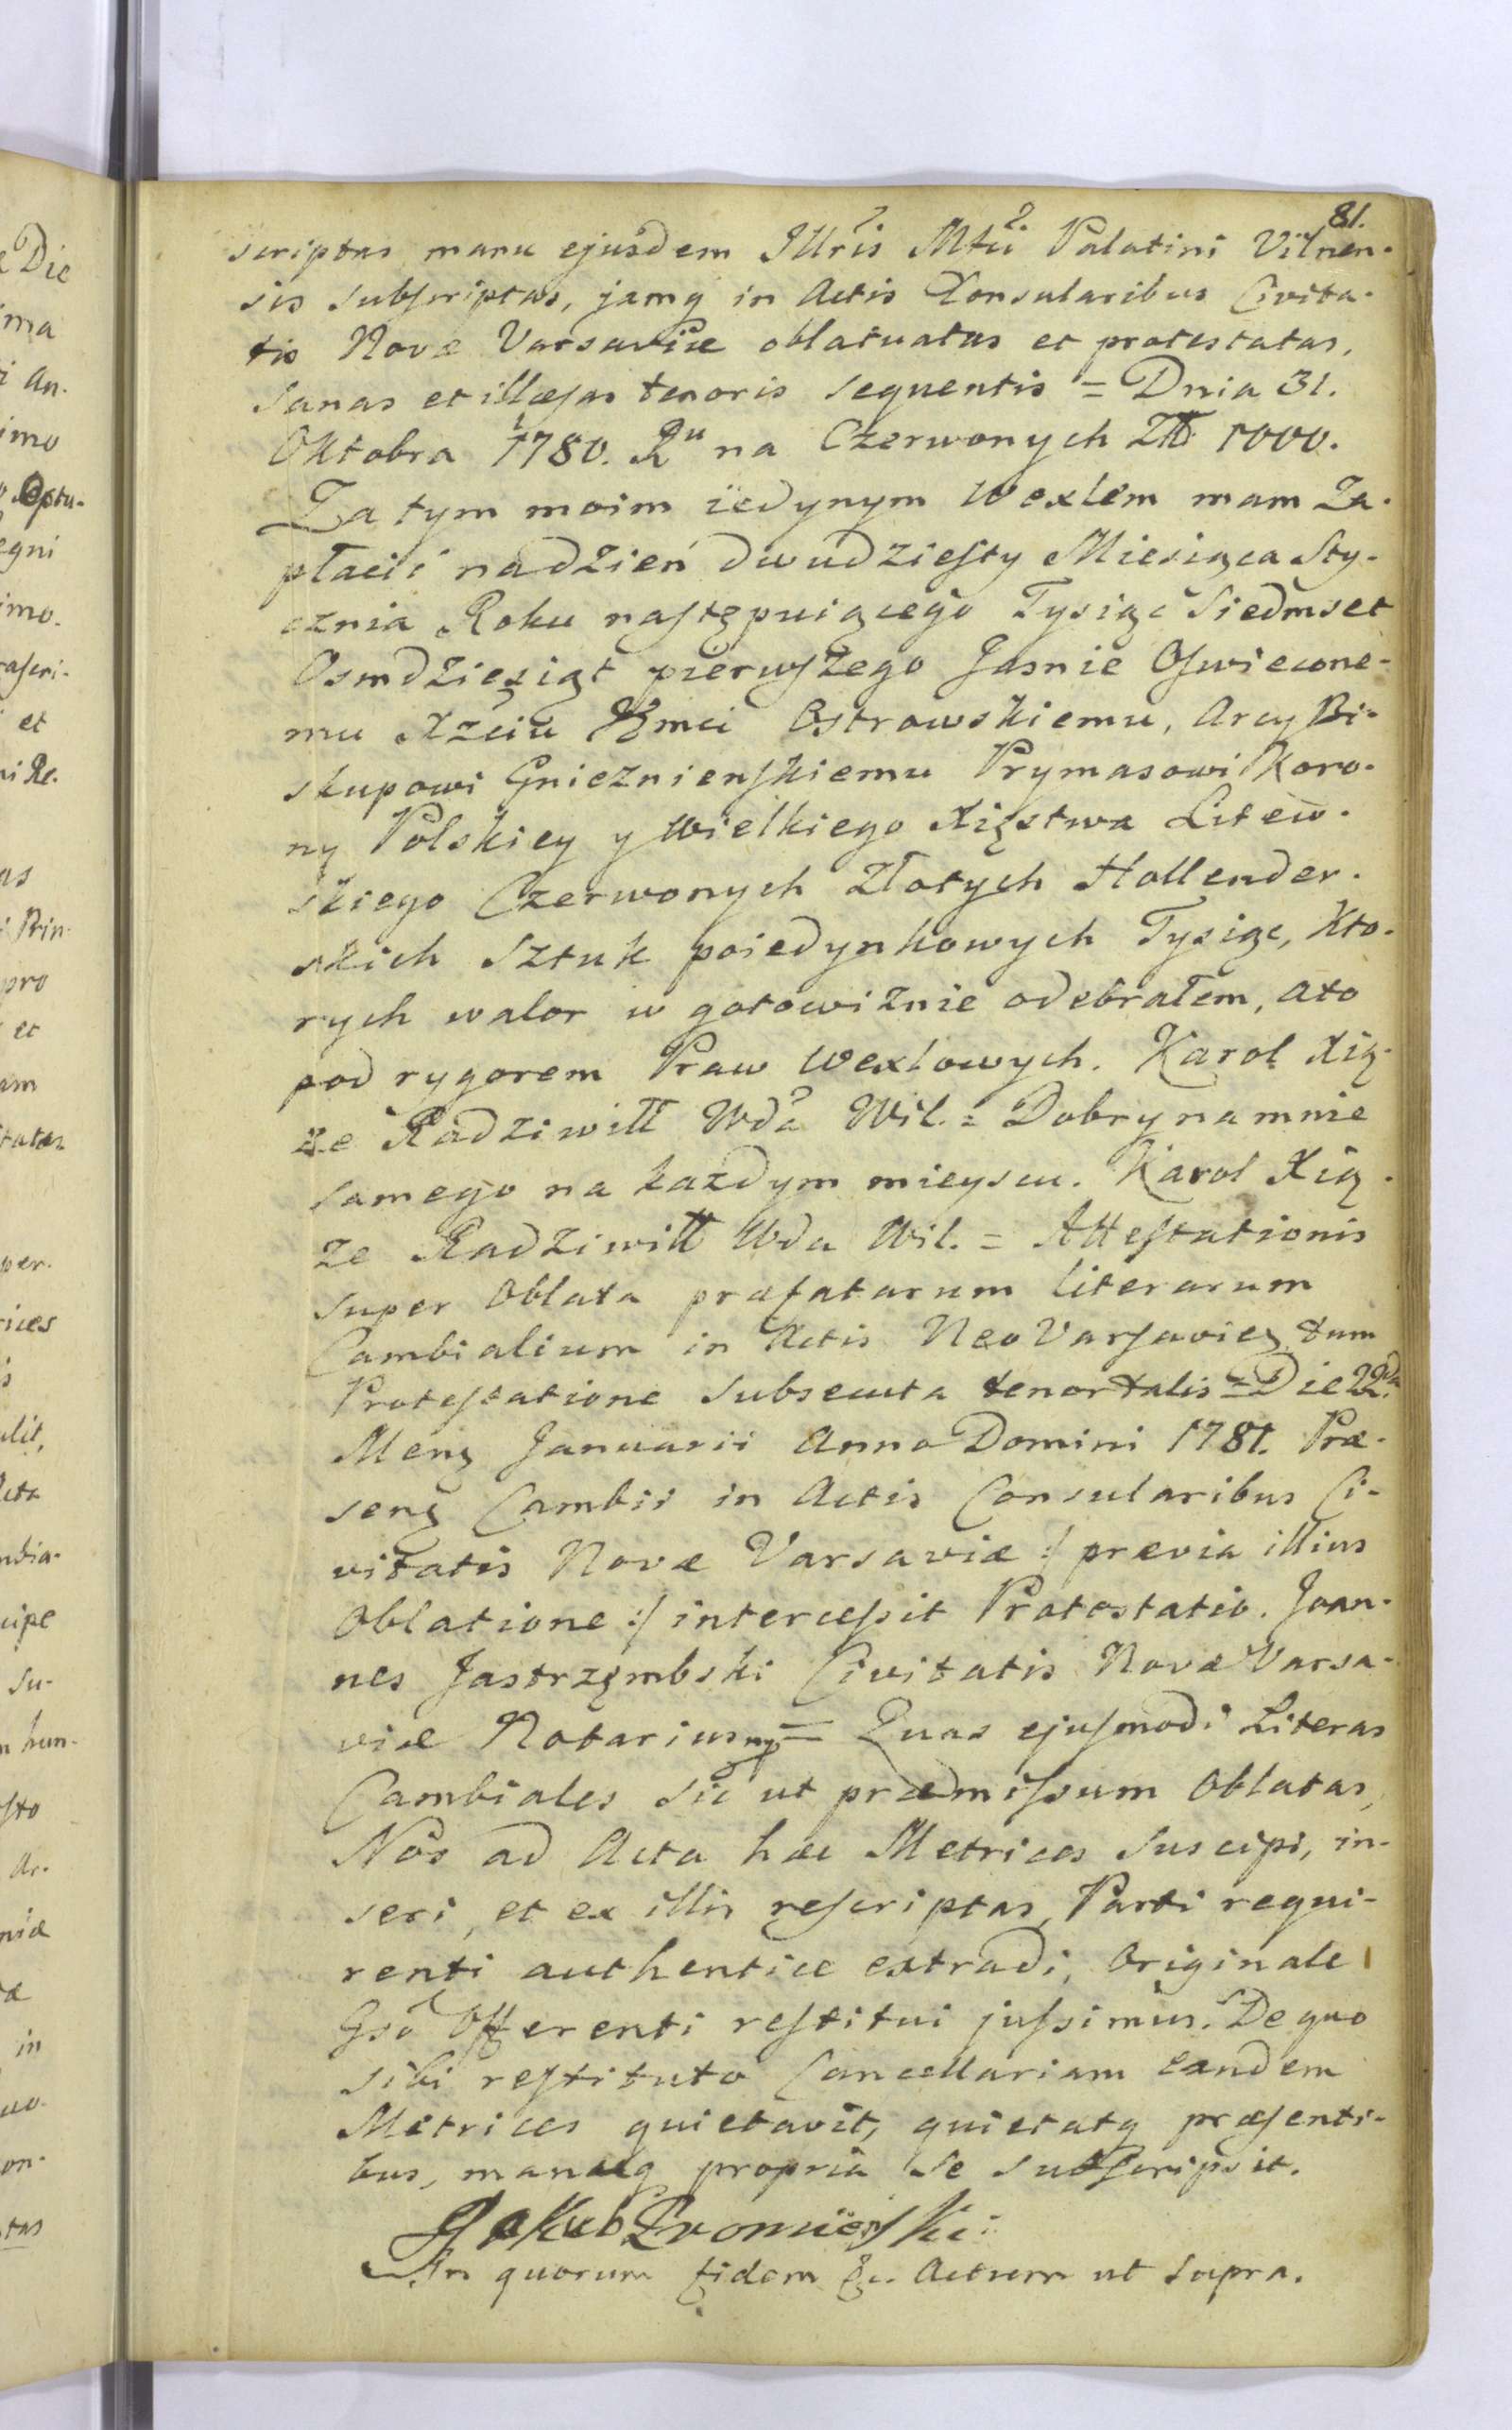 81.
scriptas manu ejusdem Illris Mtci Palatini Vilnen-
sis subscriptas, jamq in Actis Consularibus Civita-
tis Novæ Varsaviæ oblatuatas et protestatas,
sanas et illæsas tenoris sequentis = Dnia 31.
Oktobra 1780. Ru na Czerwonych Złł 1000.
Za tym moim iedynym Wexlem mam Za-
płacić na dzień dwudziesty Miesiąca Sty-
cznia Roku następuiącego Tysiąc Siedmset
Osmdziesiąt pierwszego Jasnie Oswiecone-
mu Xżciu Jmci Ostrowskiemu, Arcy Bi-
skupowi Gnieznienskiemu Prymasowi Koro-
ny Polskiey y Wielkiego Xięstwa Litew-
skiego Czerwonych Złotych Hollender-
skich Sztuk poiedynkowych Tysiąc, Kto-
rych walor w gotowiznie odebrałem, ato
pod rygorem Praw Wexlowych. Karol Xią-
że Radziwiłł Wda Wil. = Dobry na mnie
samego na każdym mieyscu. Karol Xią-
ze Radziwiłł Wda Wil. = Attestationis
super Oblata præfatarum literarum
Cambialium in Actis Neo Varsavien tum
Protestatione subsecuta tenor talis = Die 22da
Mens Januarii Anno Domini 1781. Præ-
sens Cambii in Actis Consularibus Ci-
vitatis Novæ Varsaviæ :/ prævia illius
Oblatione :/ intercessit Protestatio. Joan-
nes Jastrzęmbski Civitatis Novæ Varsa-
viæ Notarius mp = Quas ejusmodi Literas
Cambiales sic ut præmissum Oblatas,
Nos ad Acta hæc Metrices suscipi, in-
seri, et ex illis rescriptas, Parti requi-
renti authentice extradi, Originale
Gso Offerenti restitui jussimus. De quo
sibi restituto Cancellariam eandem
Metrices quietavit, quietatq præsenti-
bus, manuq propria se subscripsit.
Jakub
In quorum fidem &c. Actum ut supra.